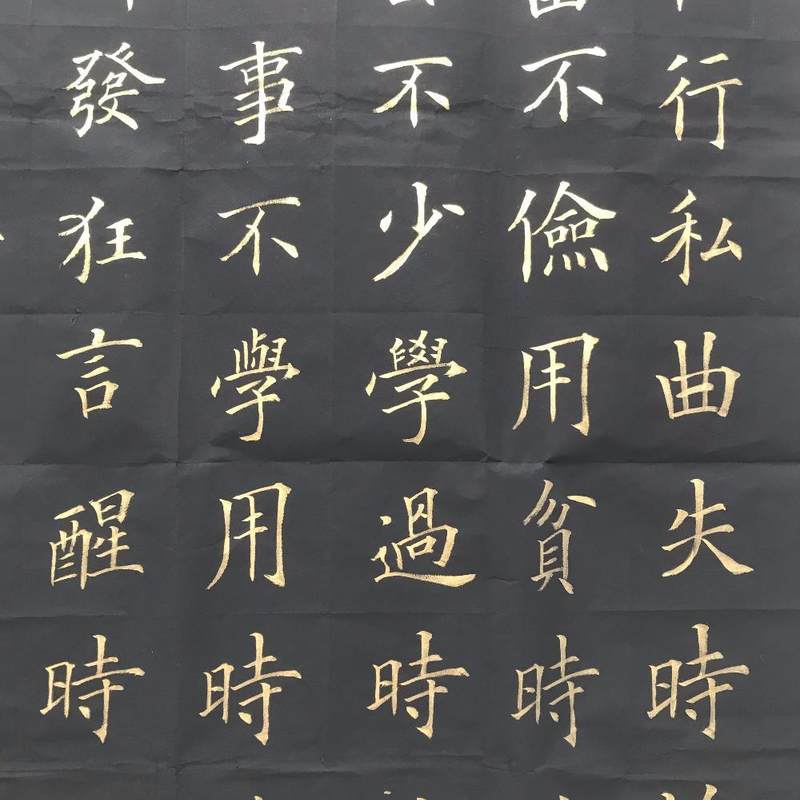 行私曲失時
不儉用貧時
不少學過時
事不學用時
發狂言醒時